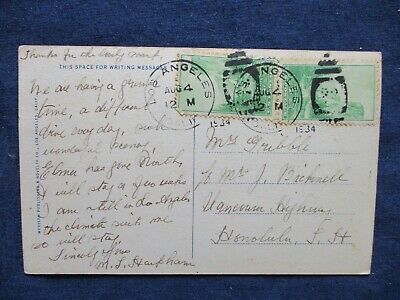 Thanks for the lovely card
THIS SPACE FOR WRITING MESSAGES
We are having a grand
time, a different
drive every day, such
wonderful scenery,
Elma has gone North,
I will stay a few weeks
I am still in Los Angeles
the climate suits me
so will stay.
Sincerely Yours
M. S. Harkham
LOS ANGELES
AUG 4
12 M
1934
ANGELES
AUG 4
12 M
1934
Mrs Gribble
℅ Mrs J. Bicknell
Highway
Honolulu, T. H
WESTERN PUBLISHING & NOVELTY CO., LOS ANGELES, CALIF.